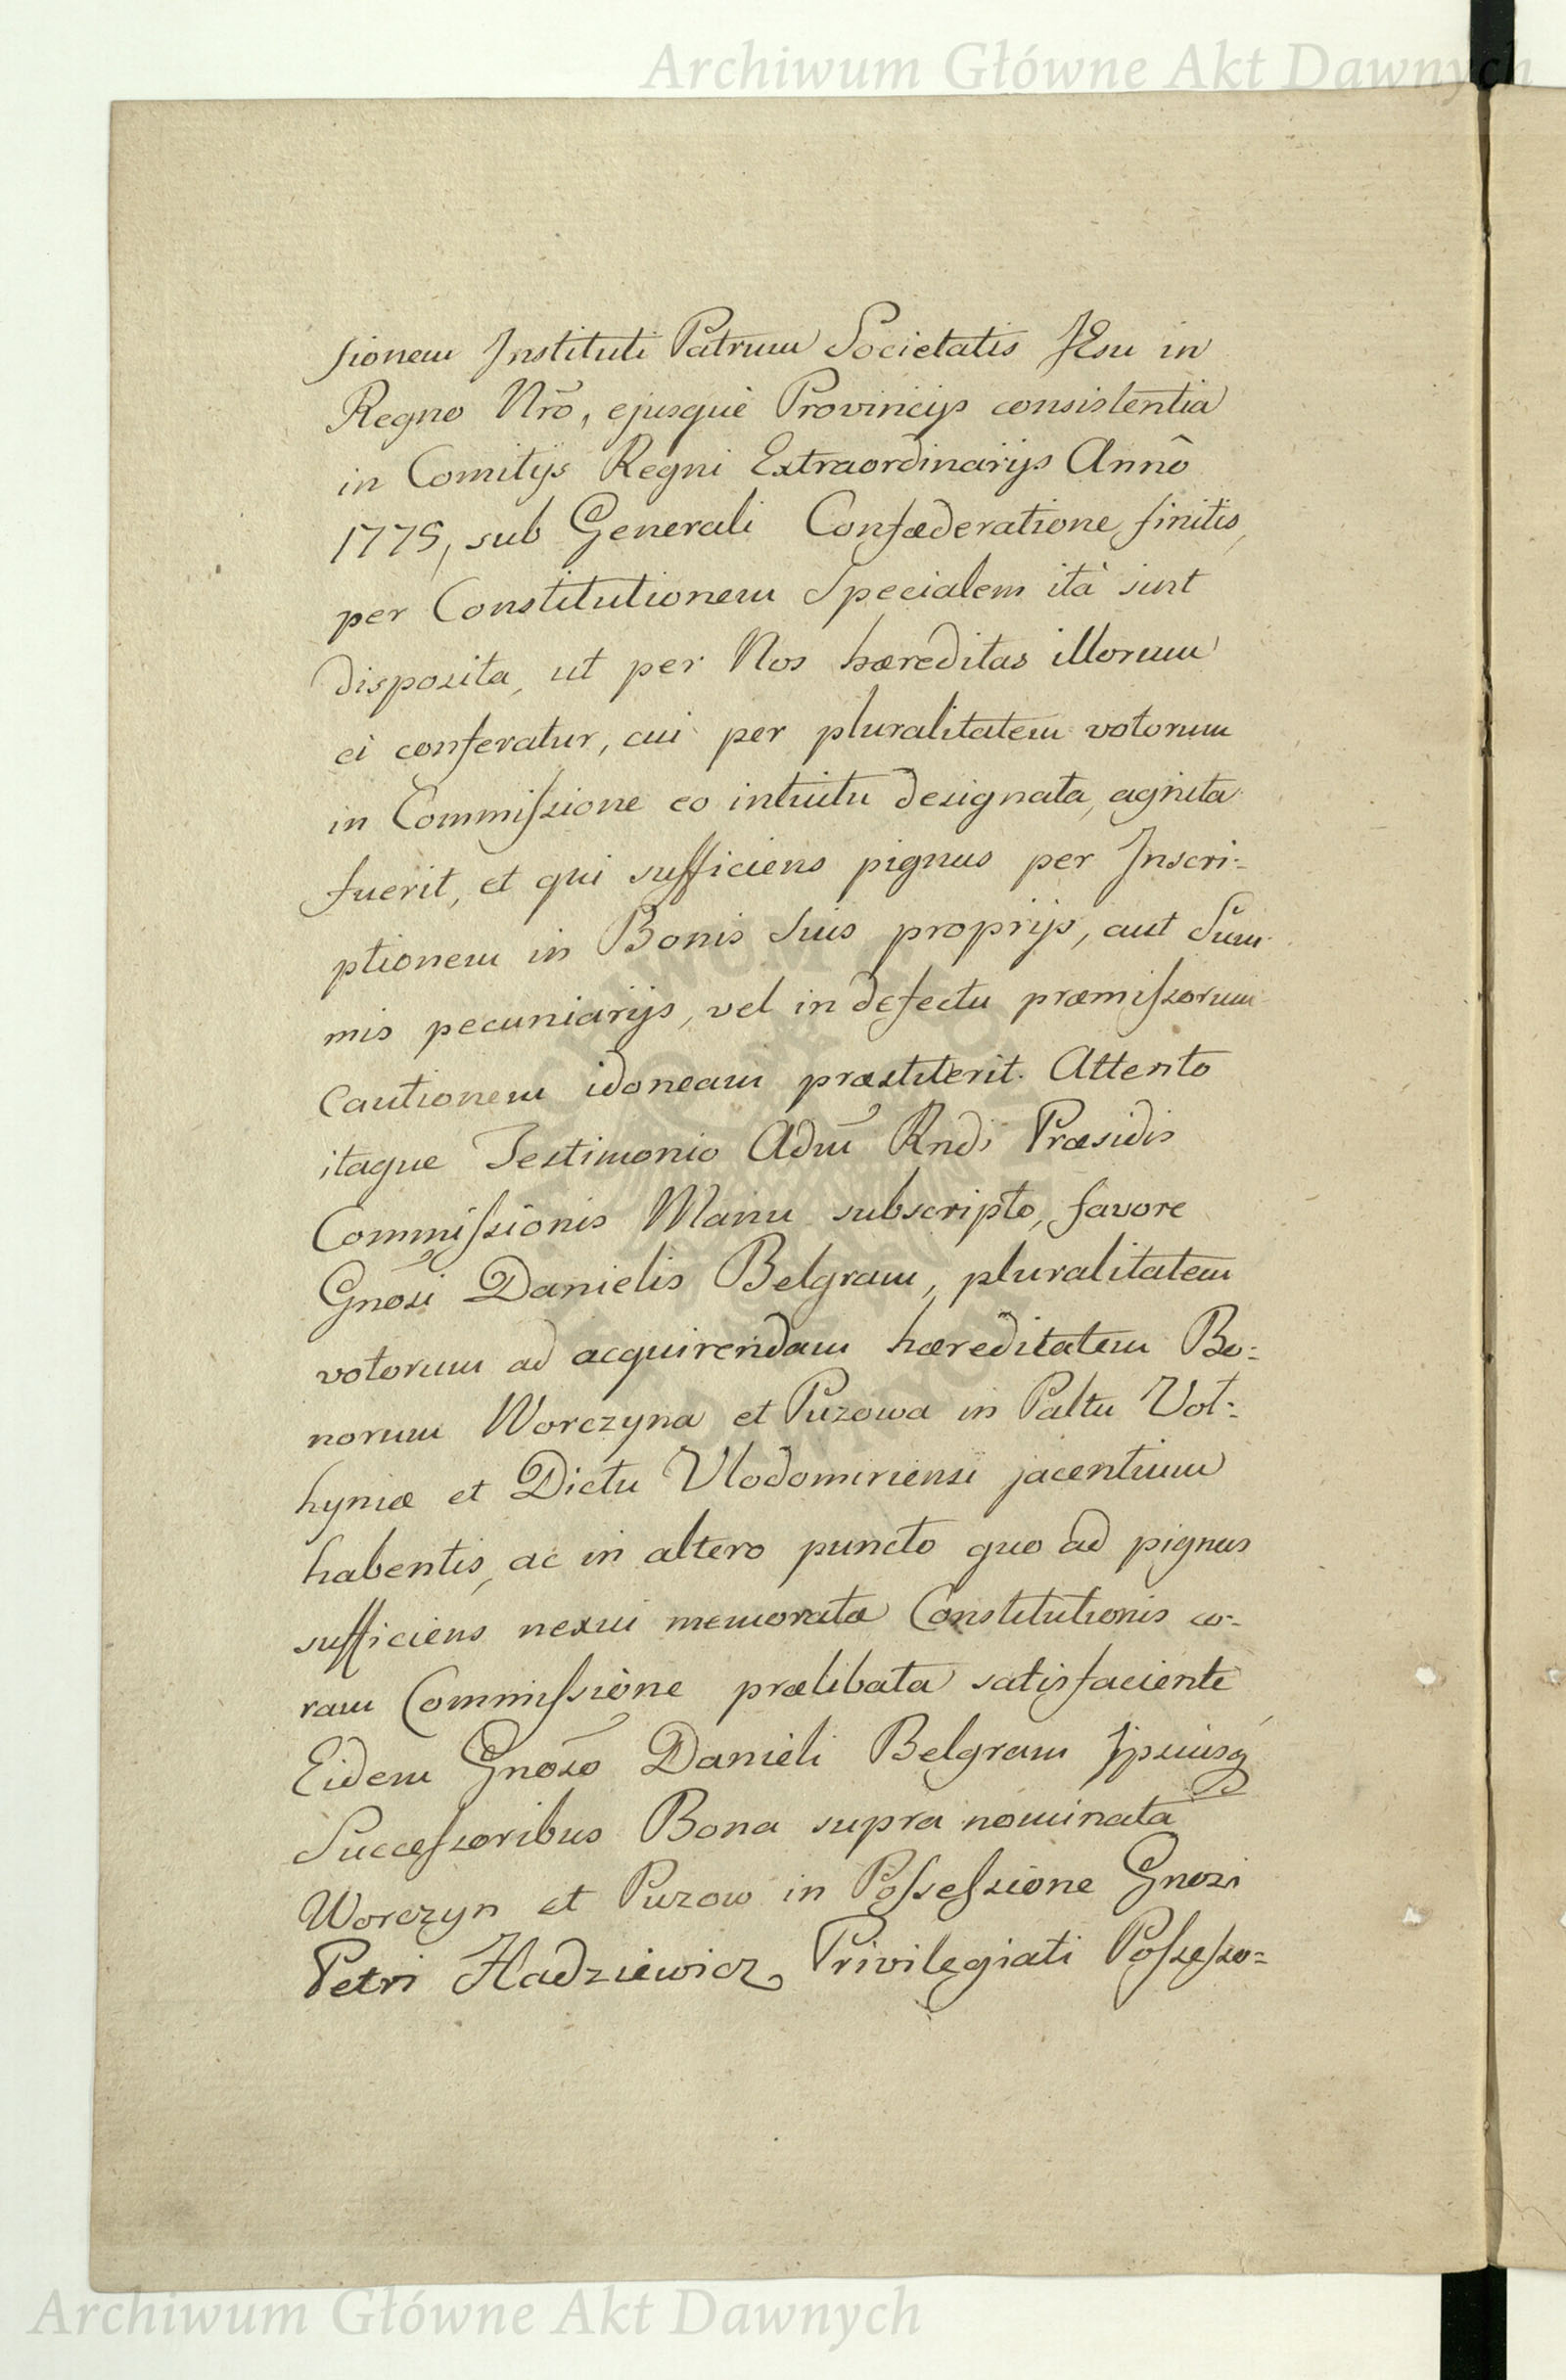 Archiwum Główne Akt Dawnych
sionem Instituti Patrum Societatis JEsu in
Regno Nrō, ejusquè Provincijs consistentia
in Comitijs Regni Extraordinarijs Annô
1775, sub Generali Confæderatione finitis,
per Constitutionem Specialem ità sunt
disposita, ut per Nos hæreditas illorum
ei conferatur, cui per pluralitatem votorum
in Commissione eo intuitu designata, agnita
fuerit, et qui sufficiens pignus per Inscri-
ptionem in Bonis Suis proprijs, aut Sum-
mis pecuniarijs, vel in defectu præmissorum
Cautionem idoneam præstiterit. Attento
itaque Testimonio Adm̄ Rndi Præsidis
Commissionis Manu subscripto, favore
Gnōsi Danielis Belgram, pluralitatem
votorum ad acquirendam hæreditatem Bo:
norum Worczyna et Puzowa in Paltu Vol:
hyniæ et Dictu Vlodomiriensi jacentium
habentis, ac in altero puncto quo ad pignus
sufficiens nexui memoratæ Constitutionis co:
ram Commissiòne prælibata satisfacienti
Eidem Gnōso Danieli Belgram Ipsiusq
Successoribus Bona supra nominata
Worczyn et Puzow in Possessione Gnosi
Petri Hadziewicz Privilegiati Possesso=
Archiwum Główne Akt Dawnych